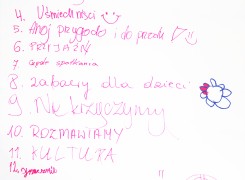 4. Uśmiechności
5. Ahoj przygodo i do przodu
6. PRZYJAŹŃ
7
8. zabawy dla dzieci
9. Nie krzyczymy
10. ROZMAWIAMY
11. KULTURA
12.